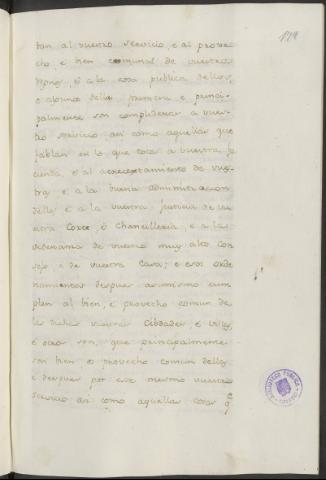 119
tan al vuestro servicio, e al prove-
cho e bien comunal de vuestros
regnos, e a la cosa publica dellos,
e algunos della primera e princi-
palmente son complideras a vues-
tro servicio asi como aquellas que
fablan en lo que toca a vuestra fa
cienda, e al acrecentamiento de vues
tros e a la buena administracion
dellos e a la vuestra justicia de vu
estra Corte, e Chancilleria, e a la
ordenanza de vuestro muy alto con
sejo e de vuestra Casa; e esas orde
namientos despues asimismo cum
plen al bien, e provecho comun de
las dichas vuestras Cibdades, e villas,
e otras son, que principalmente
son bien e provecho comun dellos
e despues por ese mesmo vuestro
servicio asi como aquellas cosas q
BIBLIOTECA PUBLICA
TOLEDO